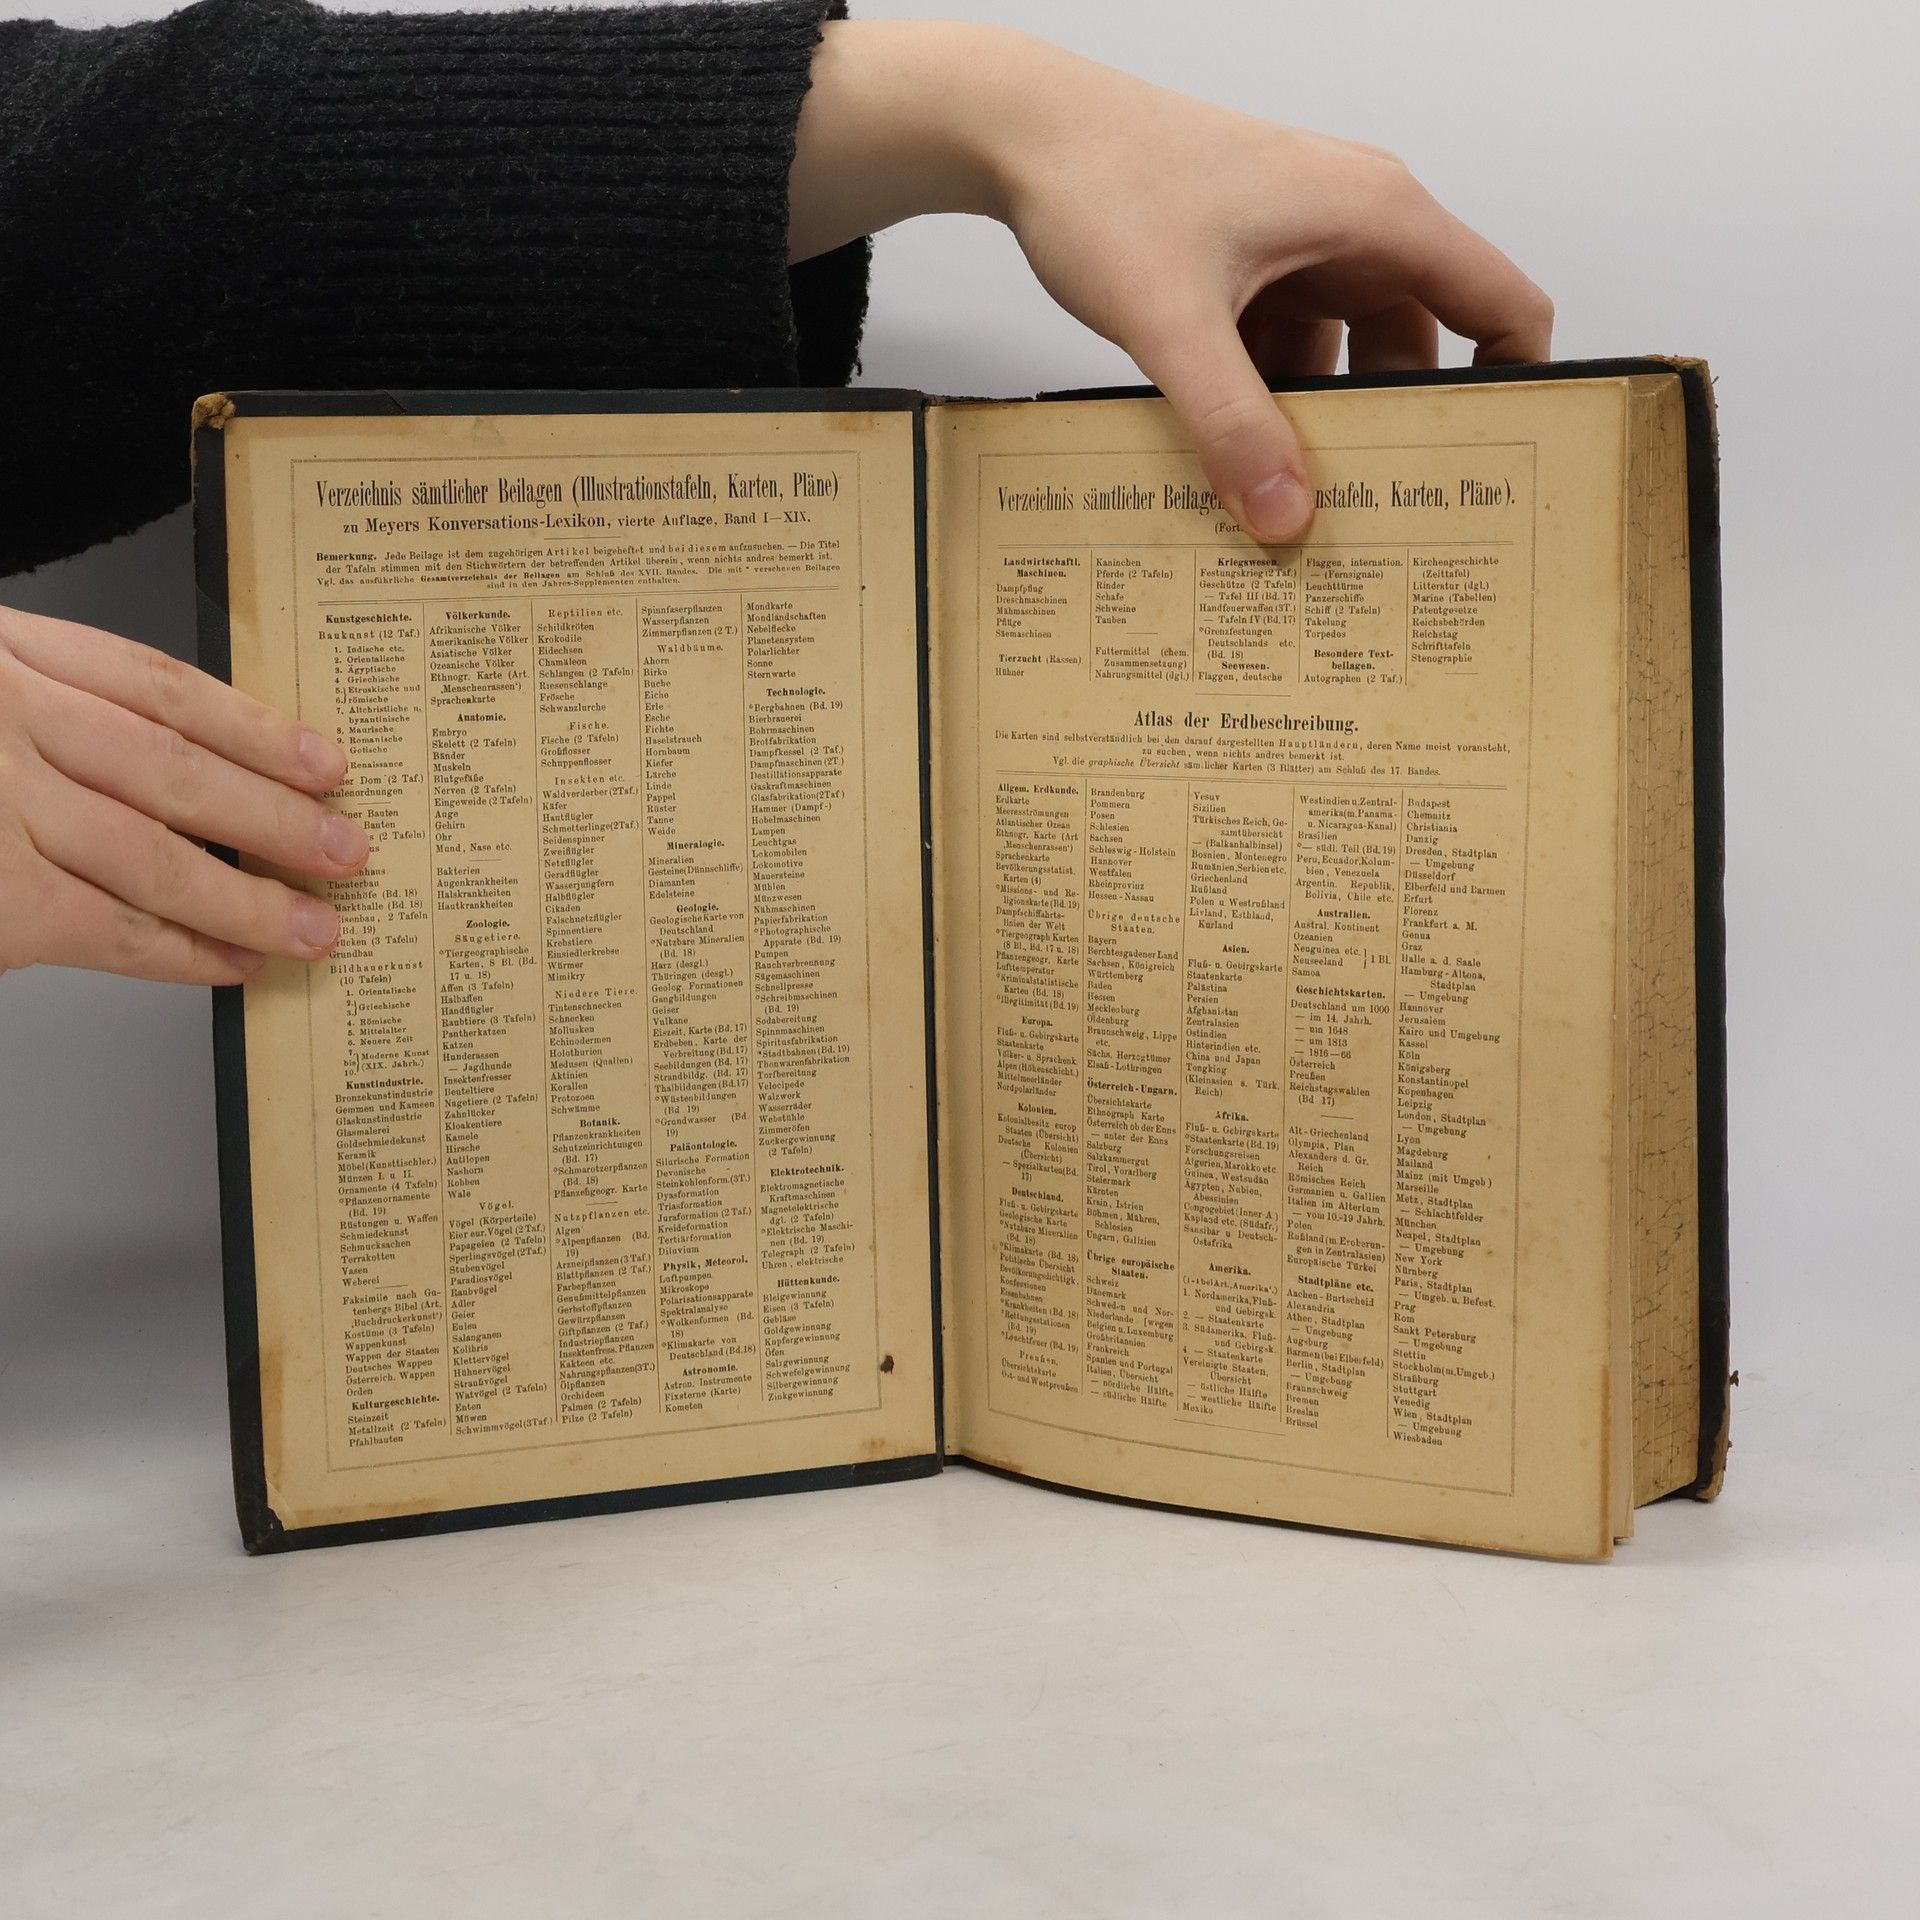 Verzeichnis sämtlicher Beilagen (Illustrationstafeln, Karten, Pläne)
zu Meyers Konversations-Lexikon, vierte Auflage, Band I—XIX.
Bemerkung. Jede Beilage ist dem zugehörigen Artikel beigeheftet und bei diesem aufzusuchen. — Die Titel
der Tafeln stimmen mit den Stichwörtern der betreffenden Artikel überein, wenn nichts andres bemerkt ist.
Vgl. das ausführliche Gesamtverzeichnis der Beilagen am Schluß des XVII. Bandes. Die mit * versehenen Beilagen
sind in den Jahres-Supplementen enthalten.
Kunstgeschichte.
Baukunst (12 Taf.)
1. Indische etc.
2. Orientalische
3. Ägyptische
4 Griechische
5. Etruskische und
6. römische
7. Altchristliche u.
byzantinische
8. Maurische
9. Romanische
Gotische
Renaissance
Dom (2 Taf.)
Säulenordnungen
Bauten
Bauten
(2 Tafeln)
Theaterbau
*Bahnhöfe (Bd. 18)
*Markthalle (Bd. 18)
*Eisenbau, 2 Tafeln
(Bd. 19)
Brücken (3 Tafeln)
Grundbau
Bildhauerkunst
(10 Tafeln)
1. Orientalische
2. Griechische
3.
4. Römische
5. Mittelalter
6. Neuere Zeit
7. Moderne Kunst
bis (XIX. Jahrh.)
10.
Kunstindustrie.
Bronzekunstindustrie
Gemmen und Kameen
Glaskunstindustrie
Glasmalerei
Goldschmiedekunst
Keramik
Möbel (Kunsttischler.)
Münzen I. u II.
Ornamente (4 Tafeln)
*Pflanzenornamente
(Bd. 19)
Rüstungen u. Waffen
Schmiedekunst
Schmucksachen
Terrakotten
Vasen
Weberei
Faksimile nach Gu-
tenbergs Bibel (Art.
‚Buchdruckerkunst‘)
Kostüme (3 Tafeln)
Wappenkunst
Wappen der Staaten
Deutsches Wappen
Österreich. Wappen
Orden
Kulturgeschichte.
Steinzeit
Metallzeit (2 Tafeln)
Pfahlbauten
Völkerkunde.
Afrikanische Völker
Amerikanische Völker
Asiatische Völker
Ozeanische Völker
Ethnogr. Karte (Art.
‚Menschenrassen‘)
Sprachenkarte
Anatomie.
Embryo
Skelett (2 Tafeln)
Bänder
Muskeln
Blutgefäße
Nerven (2 Tafeln)
Eingeweide (2 Tafeln)
Auge
Gehirn
Ohr
Mund, Nase etc.
Bakterien
Augenkrankheiten
Halskrankheiten
Hautkrankheiten
Zoologie.
Säugetiere.
*Tiergeographische
Karten, 8 Bl. (Bd.
17 u. 18)
Affen (3 Tafeln)
Halbaffen
Handflügler
Raubtiere (3 Tafeln)
Pantherkatzen
Katzen
Hunderassen
— Jagdhunde
Insektenfresser
Beuteltiere
Nagetiere (2 Tafeln)
Zahnlücker
Kloakentiere
Kamele
Hirsche
Antilopen
Nashorn
Robben
Wale
Vögel.
Vögel (Körperteile)
Eier eur. Vögel (2 Taf.)
Papageien (2 Tafeln)
Sperlingsvögel (2 Taf.)
Stubenvögel
Paradiesvögel
Raubvögel
Adler
Geier
Eulen
Salanganen
Kolibris
Klettervögel
Hühnervögel
Straußvögel
Watvögel (2 Tafeln)
Enten
Möwen
Schwimmvögel (3 Taf.)
Reptilien etc.
Schildkröten
Krokodile
Eidechsen
Chamäleon
Schlangen (2 Tafeln)
Riesenschlange
Frösche
Schwanzlurche
Fische.
Fische (2 Tafeln)
Großflosser
Schuppenflosser
Insekten etc.
Waldverderber (2 Taf.)
Käfer
Hautflügler
Schmetterlinge (2 Taf.)
Seidenspinner
Zweiflügler
Netzflügler
Geradflügler
Wasserjungfern
Halbflügler
Cikaden
Falschnetzflügler
Spinnentiere
Krebstiere
Einsiedlerkrebse
Würmer
Mimikry
Niedere Tiere.
Tintenschnecken
Schnecken
Mollusken
Echinodermen
Holothurien
Medusen (Quallen)
Aktinien
Korallen
Protozoen
Schwämme
Botanik.
Pflanzenkrankheiten
Schutzeinrichtungen
(Bd. 17)
*Schmarotzerpflanzen
(Bd. 18)
Pflanzengeogr. Karte
Nutzpflanzen etc.
Algen
*Alpenpflanzen (Bd.
19)
Arzneipflanzen (3 Taf.)
Blattpflanzen (2 Taf.)
Farbepflanzen
Genußmittelpflanzen
Gerbstoffpflanzen
Gewürzpflanzen
Giftpflanzen (2 Taf.)
Industriepflanzen
Insektenfress. Pflanzen
Kakteen etc.
Nahrungspflanzen (3 T.)
Ölpflanzen
Orchideen
Palmen (2 Tafeln)
Pilze (2 Tafeln)
Spinnfaserpflanzen
Wasserpflanzen
Zimmerpflanzen (2 T.)
Waldbäume.
Ahorn
Birke
Buche
Eiche
Erle
Esche
Fichte
Haselstrauch
Hornbaum
Kiefer
Lärche
Linde
Pappel
Rüster
Tanne
Weide
Mineralogie.
Mineralien
Gesteine (Dünnschliffe)
Diamanten
Edelsteine
Geologie.
Geologische Karte von
Deutschland
*Nutzbare Mineralien
(Bd. 18)
Harz (desgl.)
Thüringen (desgl.)
Geolog. Formationen
Gangbildungen
Geiser
Vulkane
Eiszeit, Karte (Bd. 17)
Erdbeben, Karte der
Verbreitung (Bd. 17)
Seebildungen (Bd. 17)
Strandbildg. (Bd. 17)
Thalbildungen (Bd. 17)
*Wüstenbildungen
(Bd 19)
*Grundwasser (Bd.
19)
Paläontologie.
Silurische Formation
Devonische
Steinkohlenform. (3 T.)
Dyasformation
Triasformation
Juraformation (2 Taf.)
Kreideformation
Tertiärformation
Diluvium
Physik, Meteorol.
Luftpumpen
Mikroskope
Polarisationsapparate
Spektralanalyse
*Wolkenformen (Bd.
18)
*Klimakarte von
Deutschland (Bd. 18)
Astronomie.
Astron. Instrumente
Fixsterne (Karte)
Kometen
Mondkarte
Mondlandschaften
Nebelflecke
Planetensystem
Polarlichter
Sonne
Sternwarte
Technologie.
*Bergbahnen (Bd. 19)
Bierbrauerei
Bohrmaschinen
Brotfabrikation
Dampfkessel (2 Taf.)
Dampfmaschinen (2 T.)
Destillationsapparate
Gaskraftmaschinen
Glasfabrikation (2 Taf)
Hammer (Dampf-)
Hobelmaschinen
Lampen
Leuchtgas
Lokomobilen
Lokomotive
Mauersteine
Mühlen
Münzwesen
Nähmaschinen
Papierfabrikation
*Photographische
Apparate (Bd. 19)
Pumpen
Rauchverbrennung
Sägemaschinen
Schnellpresse
*Schreibmaschinen
(Bd. 19)
Sodabereitung
Spinnmaschinen
Spiritusfabrikation
*Stadtbahnen (Bd. 19)
Thonwarenfabrikation
Torfbereitung
Velocipede
Walzwerk
Wasserräder
Webstühle
Zimmeröfen
Zuckergewinnung
(2 Tafeln)
Elektrotechnik.
Elektromagnetische
Kraftmaschinen
Magnetelektrische
dgl. (2 Tafeln)
*Elektrische Maschi-
nen (Bd. 19)
Telegraph (2 Tafeln)
Uhren, elektrische
Hüttenkunde.
Bleigewinnung
Eisen (3 Tafeln)
Gebläse
Goldgewinnung
Kupfergewinnung
Öfen
Salzgewinnung
Schwefelgewinnung
Silbergewinnung
Zinkgewinnung
Verzeichnis sämtlicher Beilagen nstafeln, Karten, Pläne).
(Fort.
Landwirtschaftl.
Maschinen.
Dampfpflug
Dreschmaschinen
Mähmaschinen
Pflüge
Säemaschinen
Tierzucht (Rassen)
Hühner
Kaninchen
Pferde (2 Tafeln)
Rinder
Schafe
Schweine
Tauben
Futtermittel (chem.
Zusammensetzung)
Nahrungsmittel (dgl.)
Kriegswesen.
Festungskrieg (2 Taf.)
Geschütze (2 Tafeln)
— Tafel III (Bd. 17)
Handfeuerwaffen (3 T.)
— Tafeln IV (Bd. 17)
*Grenzfestungen
Deutschlands etc.
(Bd. 18)
Seewesen.
Flaggen, deutsche
Flaggen, internation.
— (Fernsignale)
Leuchttürme
Panzerschiffe
Schiff (2 Tafeln)
Takelung
Torpedos
Besondere Text-
beilagen.
Autographen (2 Taf.)
Kirchengeschichte
(Zeittafel)
Litteratur (dgl.)
Marine (Tabellen)
Patentgesetze
Reichsbehörden
Reichstag
Schrifttafeln
Stenographie
Atlas der Erdbeschreibung.
Die Karten sind selbstverständlich bei den darauf dargestellten Hauptländern, deren Name meist voransteht,
zu suchen, wenn nichts andres bemerkt ist.
Vgl. die graphische Übersicht sämtlicher Karten (3 Blätter) am Schluß des 17. Bandes.
Allgem. Erdkunde.
Erdkarte
Meeresströmungen
Atlantischer Ozean
Ethnogr. Karte (Art
‚Menschenrassen‘)
Sprachenkarte
Bevölkerungsstatist.
Karten (4)
*Missions- und Re-
ligionskarte (Bd. 19)
Dampfschiffahrts-
linien der Welt
*Tiergeograph Karten
(8 Bl., Bd. 17 u. 18)
Pflanzengeogr. Karte
Lufttemperatur
*Kriminalstatistische
Karten (Bd. 18)
*Illegitimität (Bd. 19)
Europa.
Fluß- u. Gebirgskarte
Staatenkarte
Völker- u. Sprachenk.
Alpen (Höhenschicht.)
Mittelmeerländer
Nordpolarländer
Kolonien.
Kolonialbesitz europ
Staaten (Übersicht)
Deutsche Kolonien
(Übersicht)
— Spezialkarten (Bd.
17)
Deutschland.
Fluß- u. Gebirgskarte
Geologische Karte
*Nutzbare Mineralien
(Bd. 18)
*Klimakarte (Bd. 18)
Politische Übersicht
Bevölkerungsdichtigk.
Konfessionen
Eisenbahnen
*Krankheiten (Bd. 18)
*Rettungsstationen
(Bd. 19)
*Leuchtfeuer (Bd. 19)
Preußen.
Übersichtskarte
Ost- und Westpreußen
Brandenburg
Pommern
Posen
Schlesien
Sachsen
Schleswig-Holstein
Hannover
Westfalen
Rheinprovinz
Hessen-Nassau
Übrige deutsche
Staaten.
Bayern
Berchtesgadener Land
Sachsen, Königreich
Württemberg
Baden
Hessen
Mecklenburg
Oldenburg
Braunschweig, Lippe
etc.
Sächs. Herzogtümer
Elsaß-Lothringen
Österreich-Ungarn.
Übersichtskarte
Ethnograph Karte
Österreich ob der Enns
— unter der Enns
Salzburg
Salzkammergut
Tirol, Vorarlberg
Steiermark
Kärnten
Krain, Istrien
Böhmen, Mähren,
Schlesien
Ungarn, Galizien
Übrige europäische
Staaten.
Schweiz
Dänemark
Schweden und Nor-
Niederlande [wegen
Belgien u. Luxemburg
Großbritannien
Frankreich
Spanien und Portugal
Italien, Übersicht
— nördliche Hälfte
— südliche Hälfte
Vesuv
Sizilien
Türkisches Reich, Ge-
samtübersicht
— (Balkanhalbinsel)
Bosnien, Montenegro
Rumänien, Serbien etc.
Griechenland
Rußland
Polen u. Westrußland
Livland, Esthland,
Kurland
Asien.
Fluß- u. Gebirgskarte
Staatenkarte
Palästina
Persien
Afghanistan
Zentralasien
Ostindien
Hinterindien etc.
China und Japan
Tongking
(Kleinasien s. Türk.
Reich)
Afrika.
Fluß- u. Gebirgskarte
*Staatenkarte (Bd. 19)
Forschungsreisen
Algerien, Marokko etc.
Guinea, Westsudân
Ägypten, Nubien,
Abessinien
Congogebiet (Inner-A.)
Kapland etc. (Südafr.)
Sansibar u. Deutsch-
Ostafrika
Amerika.
(1-4 bei Art. ‚Amerika‘.)
1. Nordamerika, Fluß-
und Gebirgsk.
2. — Staatenkarte
3. Südamerika, Fluß-
und Gebirgsk.
4 — Staatenkarte
Vereinigte Staaten,
Übersicht
— östliche Hälfte
— westliche Hälfte
Mexiko
Westindien u. Zentral-
amerika (m. Panama-
u. Nicaragua-Kanal)
Brasilien
*— südl. Teil (Bd. 19)
Peru, Ecuador, Kolum-
bien, Venezuela
Argentin. Republik,
Bolivia, Chile etc.
Australien.
Austral. Kontinent
Ozeanien
Neuguinea etc. } 1 Bl.
Neuseeland
Samoa
Geschichtskarten.
Deutschland um 1000
— im 14. Jahrh.
— um 1648
— um 1813
— 1816—66
Österreich
Preußen
Reichstagswahlen
(Bd 17)
Alt-Griechenland
Olympia, Plan
Alexanders d. Gr.
Reich
Römisches Reich
Germanien u. Gallien
Italien im Altertum
— vom 10.-19 Jahrh.
Polen
Rußland (m. Eroberun-
gen in Zentralasien)
Europäische Türkei
Stadtpläne etc.
Aachen-Burtscheid
Alexandria
Athen, Stadtplan
— Umgebung
Augsburg
Barmen (bei Elberfeld)
Berlin, Stadtplan
— Umgebung
Braunschweig
Bremen
Breslau
Brüssel
Budapest
Chemnitz
Christiania
Danzig
Dresden, Stadtplan
— Umgebung
Düsseldorf
Elberfeld und Barmen
Erfurt
Florenz
Frankfurt a. M.
Genua
Graz
Halle a. d. Saale
Hamburg-Altona,
Stadtplan
— Umgebung
Hannover
Jerusalem
Kairo und Umgebung
Kassel
Köln
Königsberg
Konstantinopel
Kopenhagen
Leipzig
London, Stadtplan
— Umgebung
Lyon
Magdeburg
Mailand
Mainz (mit Umgeb)
Marseille
Metz, Stadtplan
— Schlachtfelder
München
Neapel, Stadtplan
— Umgebung
New York
Nürnberg
Paris, Stadtplan
— Umgeb. u. Befest.
Prag
Rom
Sankt Petersburg
— Umgebung
Stettin
Stockholm (m. Umgeb.)
Straßburg
Stuttgart
Venedig
Wien, Stadtplan
— Umgebung
Wiesbaden